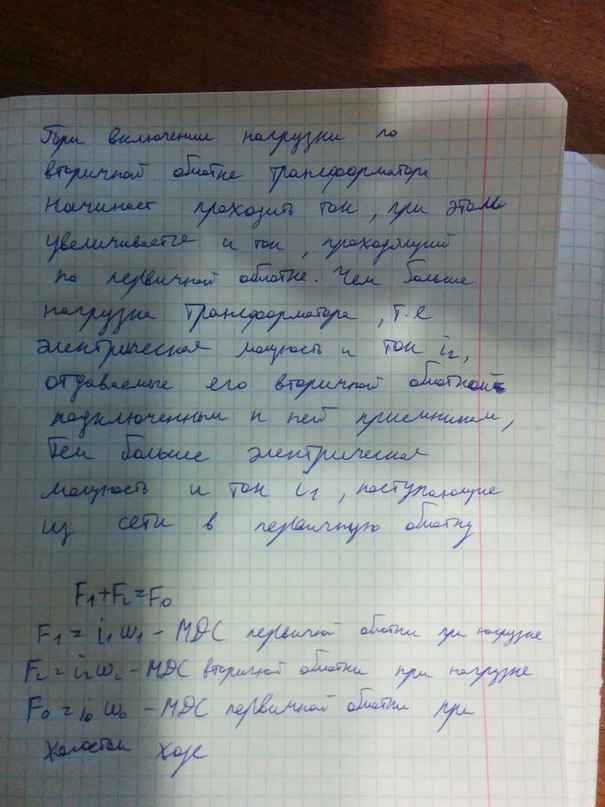 При включении нагрузки по
вторичной обмотке трансформатора
начинает проходить ток, при этом
увеличивается и ток, проходящий
по первичной обмотке. Чем больше
нагрузка трансформатора, т.е
электрическая мощность и ток i₂,
отдаваемые его вторичной обмоткой
подключенным к ней приемникам,
тем больше электрическая
мощность и ток i₁, поступающие
из сети в первичную обмотку
F₁+F₂=F₀
F₁=i₁ω₁ - МДС первичной обмотки при нагрузке
F₂=i₂ω₂ - МДС вторичной обмотки при нагрузке
F₀=i₀ω₀ - МДС первичной обмотки при
холостом ходе